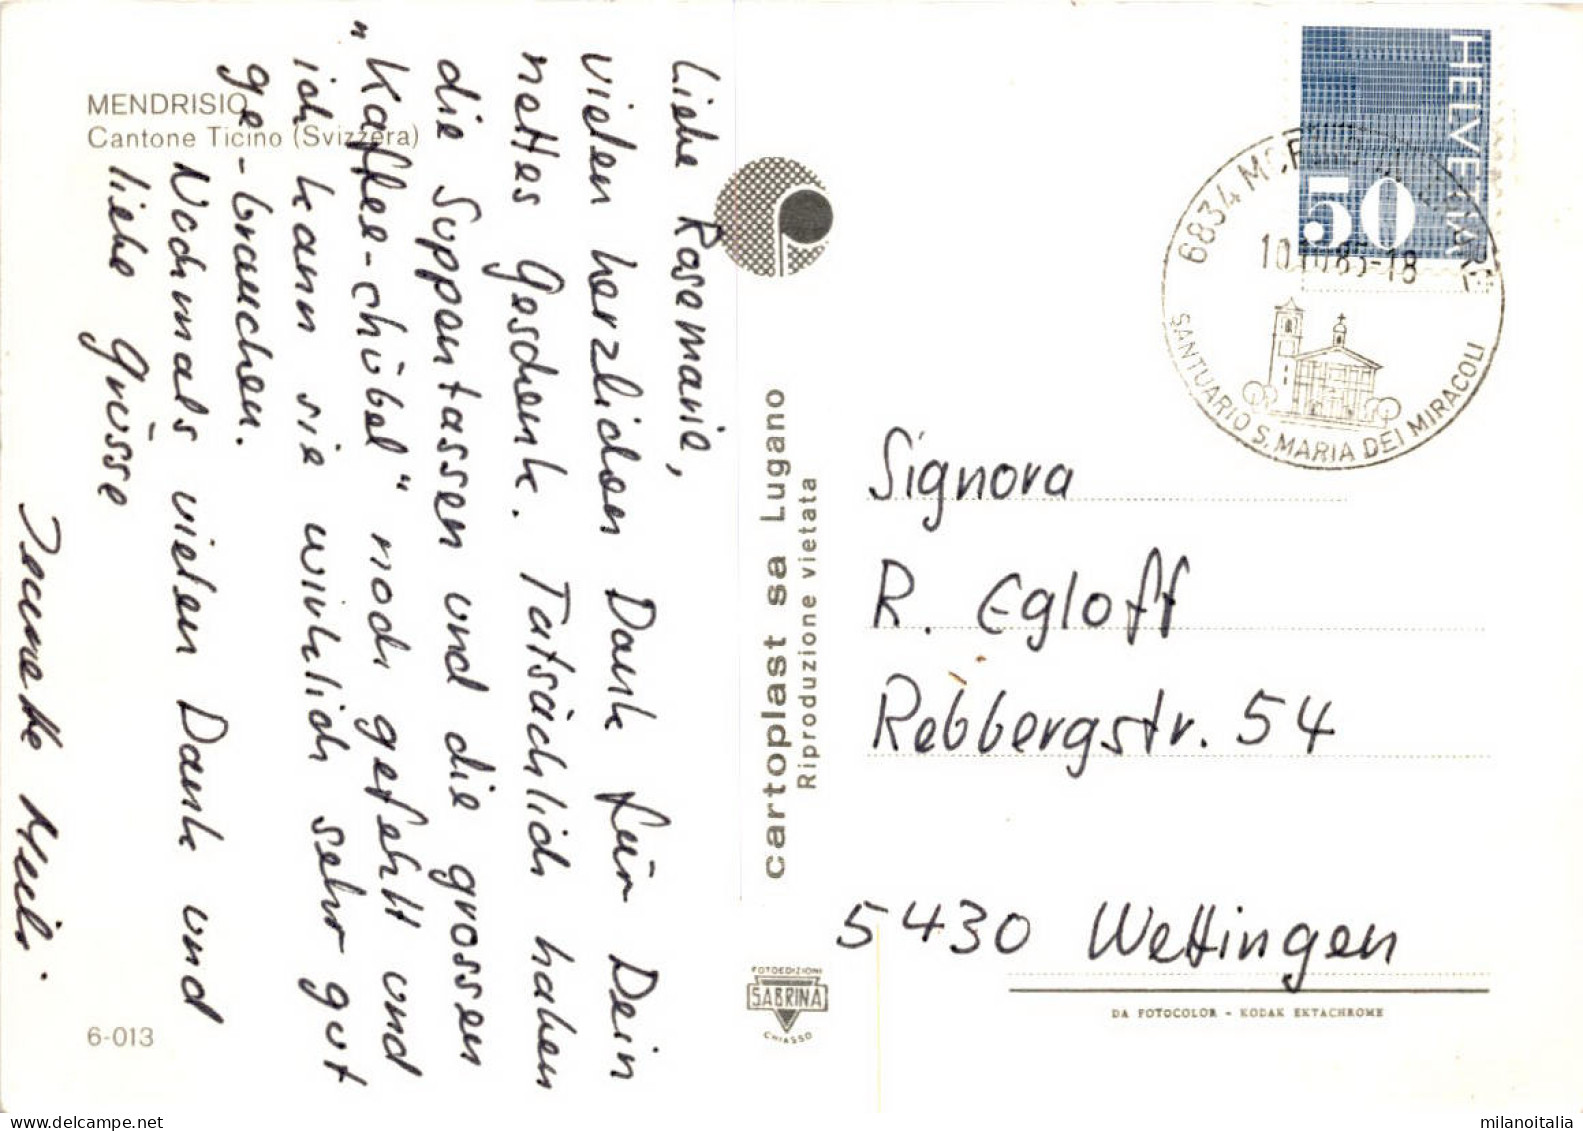 MENDRISIO
Cantone Ticino (Svizzera)
Liebe Rosemarie,
vielen herzlichen Dank für Dein
nettes Geschenk. Tatsächlich haben
die Suppentassen und die grossen
„Kaffee-chübel“ noch gefehlt und
ich kann sie wirklich sehr gut
ge-brauchen.
Nochmals vielen Dank und
liebe Grüsse
6-013
cartoplast sa Lugano
Riproduzione vietata
FOTOEDIZIONI
SABRINA
CHIASSO
HELVETIA
50
6834 MORBIO INFERIORE
-18
SANTUARIO S. MARIA DEI MIRACOLI
Signora
R. Egloff
Rebbergstr. 54
5430 Wettingen
DA FOTOCOLOR - KODAK EKTACHROME
milanoitalia